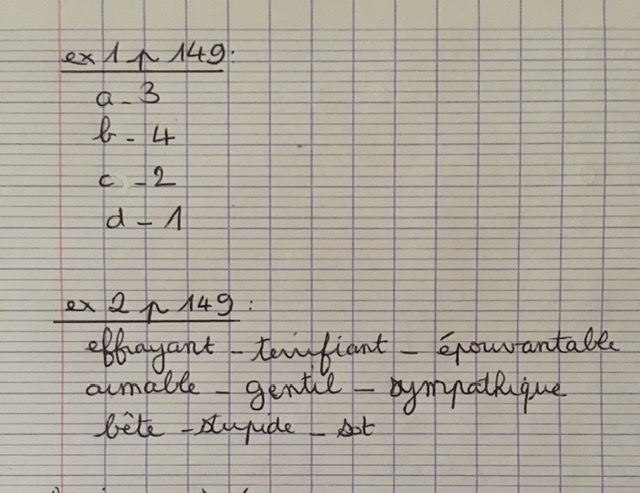 ex 1 p 149:
a - 3
b - 4
c - 2
d - 1
ex 2 p 149 :
effrayant - terrifiant - épouvantable
aimable - gentil - sympathique
bête - stupide - sot